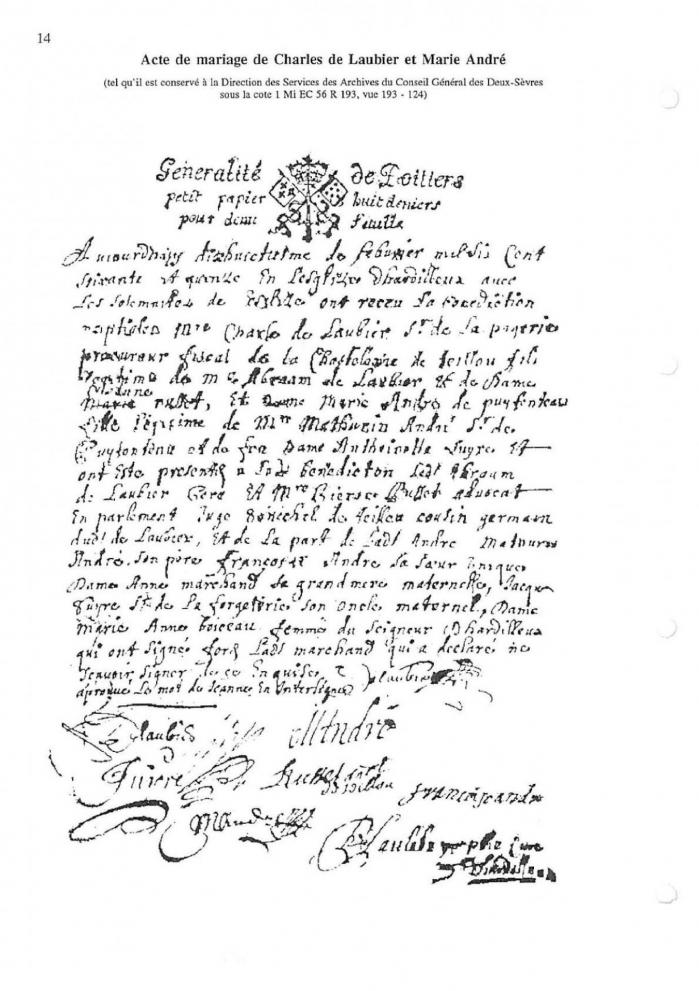 14
Acte de mariage de Charles de Laubier et Marie André
(tel qu'il est conservé à la Direction des Services des Archives du Conseil Général des Deux-Sèvres
sous la cote 1 Mi EC 56 R 193, vue 193 - 124)
Generalité de Poitiers
petit papier huit deniers
pour demi feuille
Aujourdhuy dixhuictiesme de febvrier mil six Cent
soixante et quinze En Lesglize Dhardilleux avec
Les solemnites de Esglize ont receu La benediction
nuptialle Mre Charle de Laubier Sr de La pagerie
procureur fiscal de la Chastelanye de teillou fils
legitime de me Abraam de Laubier Et de Dame
Jeanne
Marie russet, Et Dame Marie André de puyfonteau
fille legitime de Mre Mathurin André Sr de
et de feu Dame Anthoinette fuyre Et
ont Este present a La benediction Ledt Abraam
de Laubier Pere Et Mre Pierre Russet advocat
En parlement Juge Senechel de teillou cousin germain
dudt de Laubier, Et de La part de Ladt André Mathurin
André, son père françoise André sa sœur unique
Dame Anne marchand sa grandmere maternelle, Jacque
fuyre Sr de La forgeterie son oncle maternel, Dame
Marie Anne boiceau femme du Seigneur Dhardilleux
qui ont signé fors Ladt marchand qui a declaré ne
scavoir signer de ce Enquise Delaubier
aprouvé Le mot de Jeanne En Interligne
Delaubier MAndré
fuire Russet francoise andre
MAndré
Delaubier cure